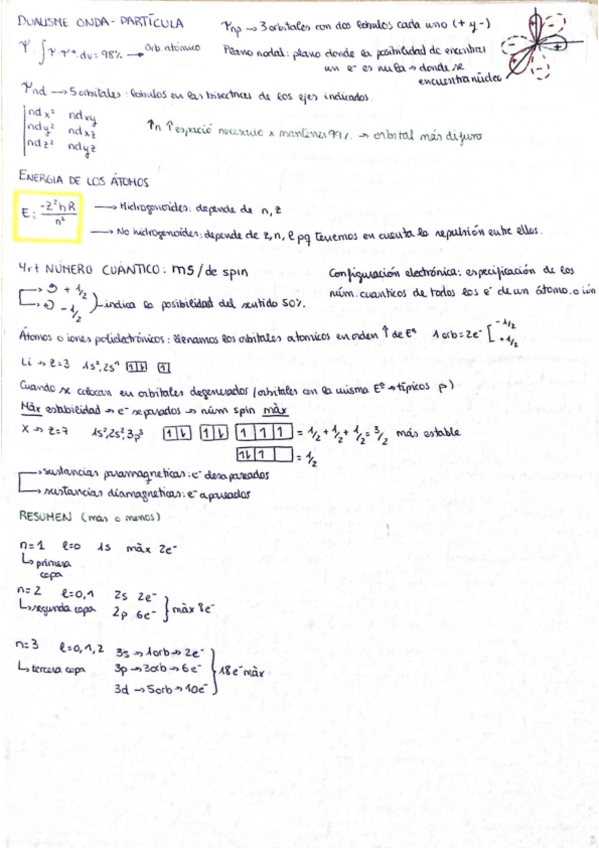 DUALISME ONDA-PARTÍCULA
Ψnp → 3 orbitales con dos lóbulos cada uno (+ y -)
Ψ · ∫ Ψ · Ψ* · dv = 98% → Orb atómico
Plano nodal: plano donde la posibilidad de encontrar
un e⁻ es nula → donde se
encuentra núcleo
Ψnd → 5 orbitales: lóbulos en las bisectrices de los ejes indicados.
ndx² ndxy
ndy² ndxz
ndz² ndyz
↑n ↑espacio necesario x mantener 99% → orbital más difuso
ENERGIA DE LOS ÁTOMOS
E: -Z²hR / n²
→ Hidrogenoides: depende de n, z
→ No hidrogenoides: depende de z, n, l pq tenemos en cuenta la repulsión entre ellos.
4rt NÚMERO CUÁNTICO: ms/de spin
+ 1/2
- 1/2
indica la posibilidad del sentido 50%.
Configuración electrónica: especificación de los
núm. cuanticos de todos los e⁻ de un átomo o ión
Átomos o iones polielectrónicos: llenamos los orbitales atomicos en orden ↑ de Eª 1 orb = 2e⁻ [ -1/2
+1/2
Li → z=3 1s², 2s¹ 1↓ 1
Cuando se colocan en orbitales degenerados (orbitales con la misma Eª → típicos p)
Màx estabilidad → e⁻ separados → núm spin màx
X → z=7 1s², 2s², 3p³ 1↓ 1↓ 1 1 1 = 1/2 + 1/2 + 1/2 = 3/2 más estable
1↓ 1 = 1/2
→ sustancias paramagneticas: e⁻ desapareados
→ sustancias diamagneticas: e⁻ apareados
RESUMEN (más o menos)
n=1 l=0 1s màx 2e⁻
↳ primera
capa
n=2 l=0,1 2s 2e⁻
↳ segunda capa 2p 6e⁻ } màx 8e⁻
n=3 l=0,1,2 3s → 1orb → 2e⁻
↳ tercera capa 3p → 3orb → 6e⁻ } 18e⁻ màx
3d → 5orb → 10e⁻